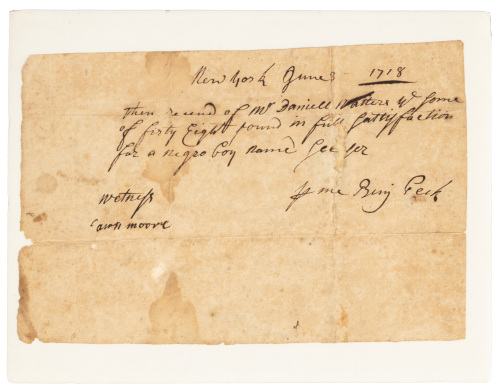 New York June 3 1718
then receved of Mr Daniell Walters ye some
of forty Eight pound in full sattisfaction
for a negro boy named
witness pr me Benj Peck
moore